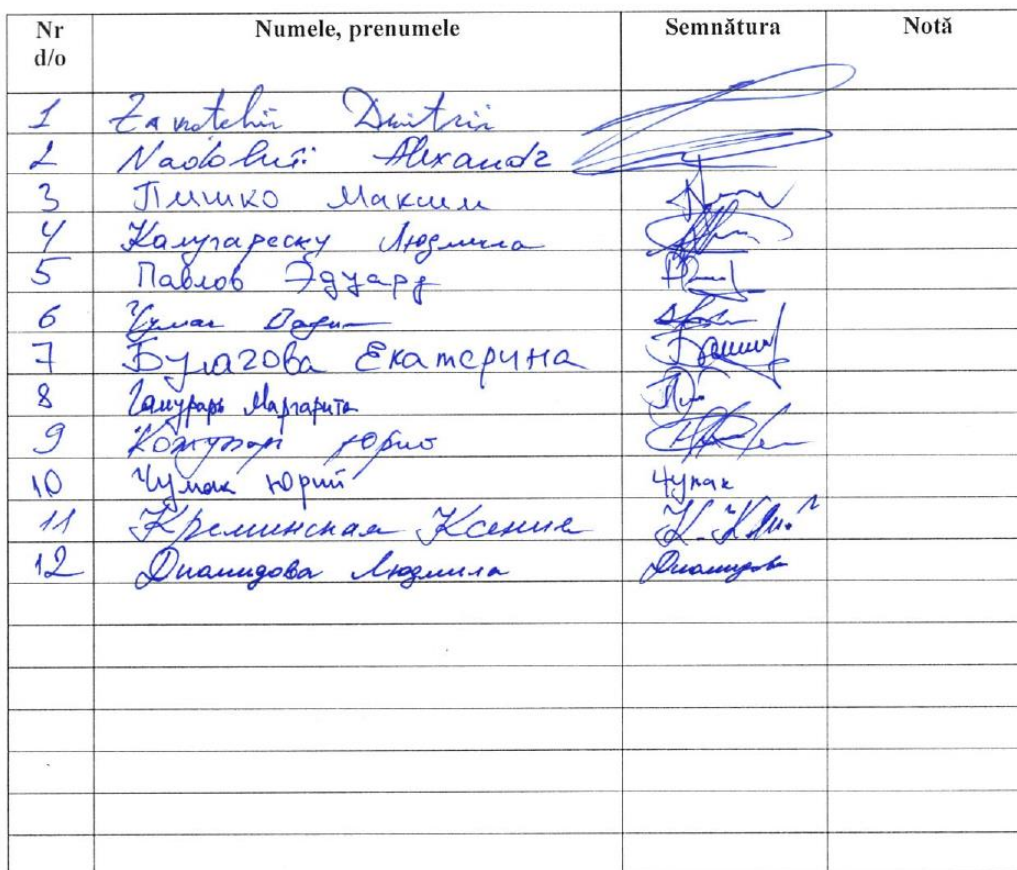 Nr d/o Numele, prenumele Semnătura Notă
1 Dmitrii
2 Alexandr
3 Пишко Максим
4 Калугареску Людмила
5 Павлов Эдуард
6 Чумак Вадим
7 Булагова Екатерина
8 Маргарита
9 Юрию
10 Чумак Юрий Чумак
11 Креминская Ксения
12 Диамидова Людмила Диамидова